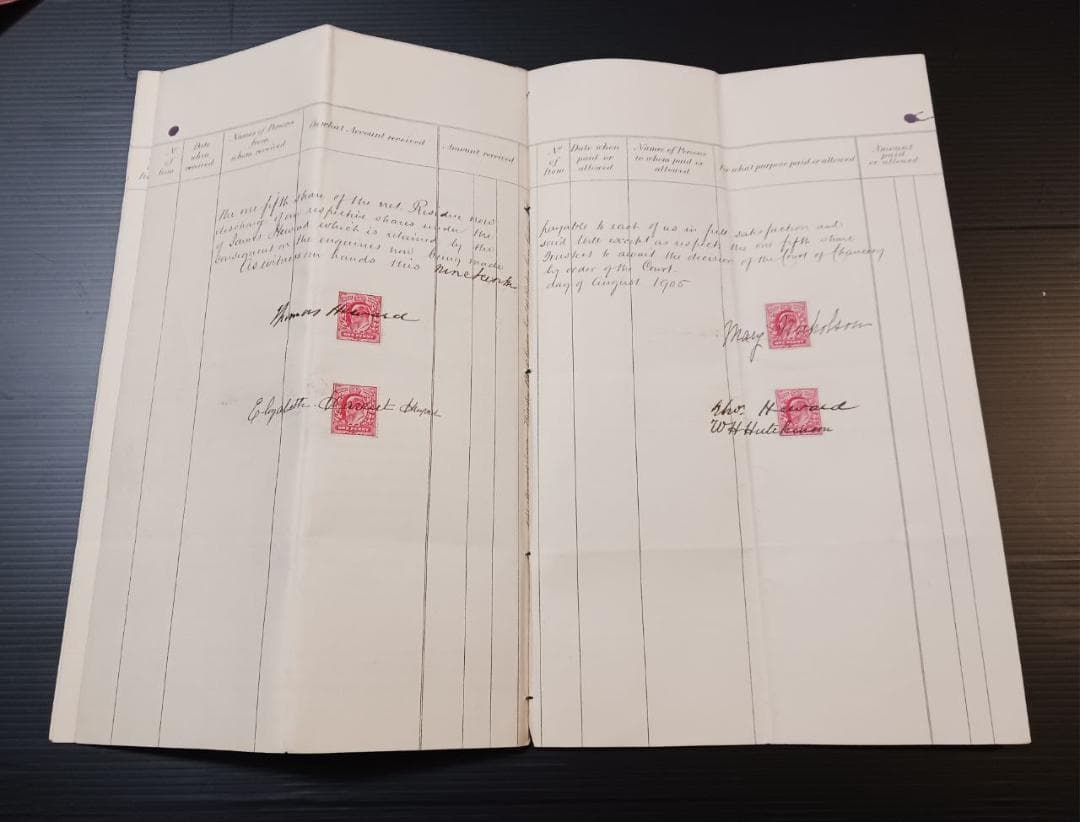 No of Item
Date when received
Names of Persons from whom received
On what Account received
Amount received
the one fifth share of the net Residue now
discharge of our respective shares under the
of James Heward which is retained by the
consequent on the enquiries now being made
As witness our hands this nineteenth
Thomas Heward
Elizabeth Heward
ONE PENNY
ONE PENNY
No of Item
Date when paid or allowed
Names of Persons to whom paid or allowed
For what purpose paid or allowed
Amount paid or allowed
payable to each of us in full satisfaction and
said Will except as respects the one fifth share
Trustees to await the decision of the Court of Chancery
by order of the Court.
day of August 1905
Mary Nicholson
Thos. Heward
W H Hutchinson
ONE PENNY